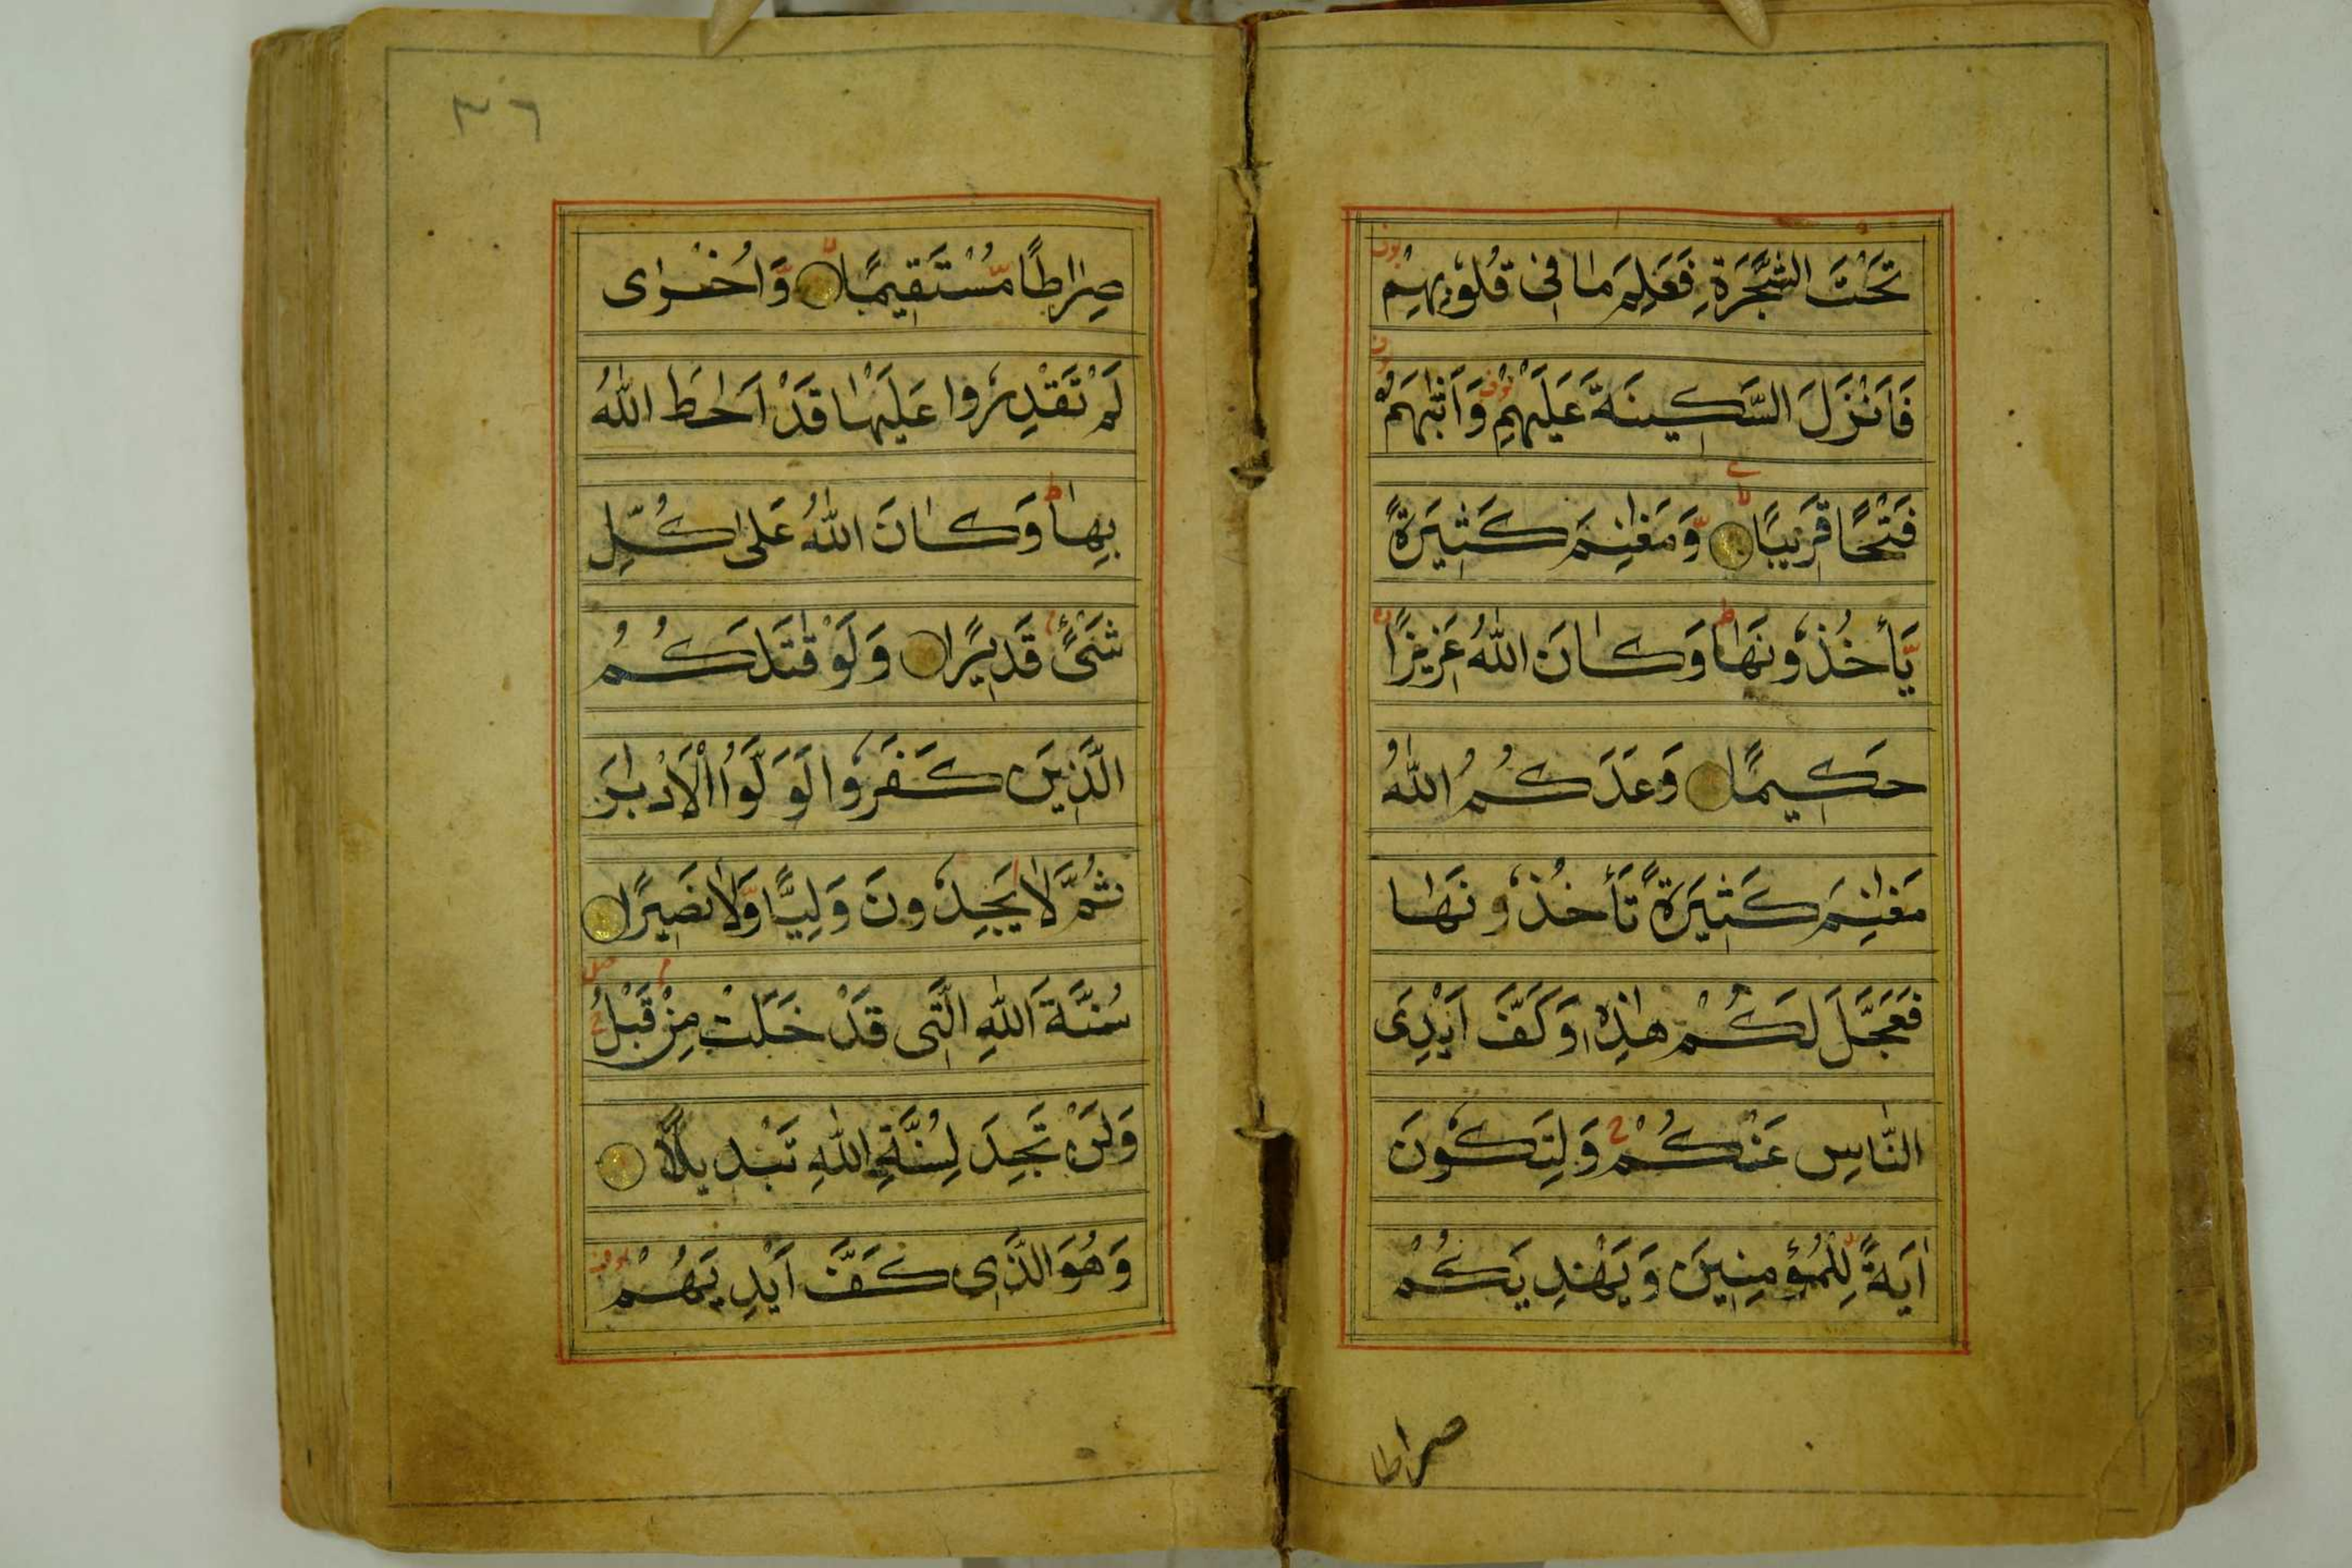 تَحْتَ الشَّجَرَةِ فَعَلِمَ مَا فِى قُلُوْبِهِمْ
فَاَنْزَلَ السَّكِينَةَ عَلَيْهِمْ وَاَثٰبَهُمْ
فَتْحًا قَرِيبًا وَّمَغٰنِمَ كَثِيرَةً
يَّأْخُذُونَهَا ط وَكَانَ اللّٰهُ عَزِيزًا
حَكِيمًا وَعَدَكُمُ اللّٰهُ
مَغٰنِمَ كَثِيرَةً تَأْخُذُونَهَا
فَعَجَّلَ لَكُمْ هٰذِهٖ وَكَفَّ اَيْدِىَ
النَّاسِ عَنْكُمْ وَلِتَكُونَ
اٰيَةً لِّلْمُؤْمِنِينَ وَيَهْدِيَكُمْ
صراطا
٣٦
صِرَاطًا مُّسْتَقِيمًا لا وَّاُخْرٰى
لَمْ تَقْدِرُوا عَلَيْهَا قَدْ اَحَاطَ اللّٰهُ
بِهَا ط وَكَانَ اللّٰهُ عَلٰى كُلِّ
شَىْءٍ قَدِيرًا وَلَوْ قٰتَلَكُمُ
الَّذِينَ كَفَرُوا لَوَلَّوُا الْاَدْبٰرَ
ثُمَّ لَا يَجِدُونَ وَلِيًّا وَّلَا نَصِيرًا
سُنَّةَ اللّٰهِ الَّتِى قَدْ خَلَتْ مِنْ قَبْلُ
وَلَنْ تَجِدَ لِسُنَّةِ اللّٰهِ تَبْدِيلًا
وَهُوَ الَّذِى كَفَّ اَيْدِيَهُمْ